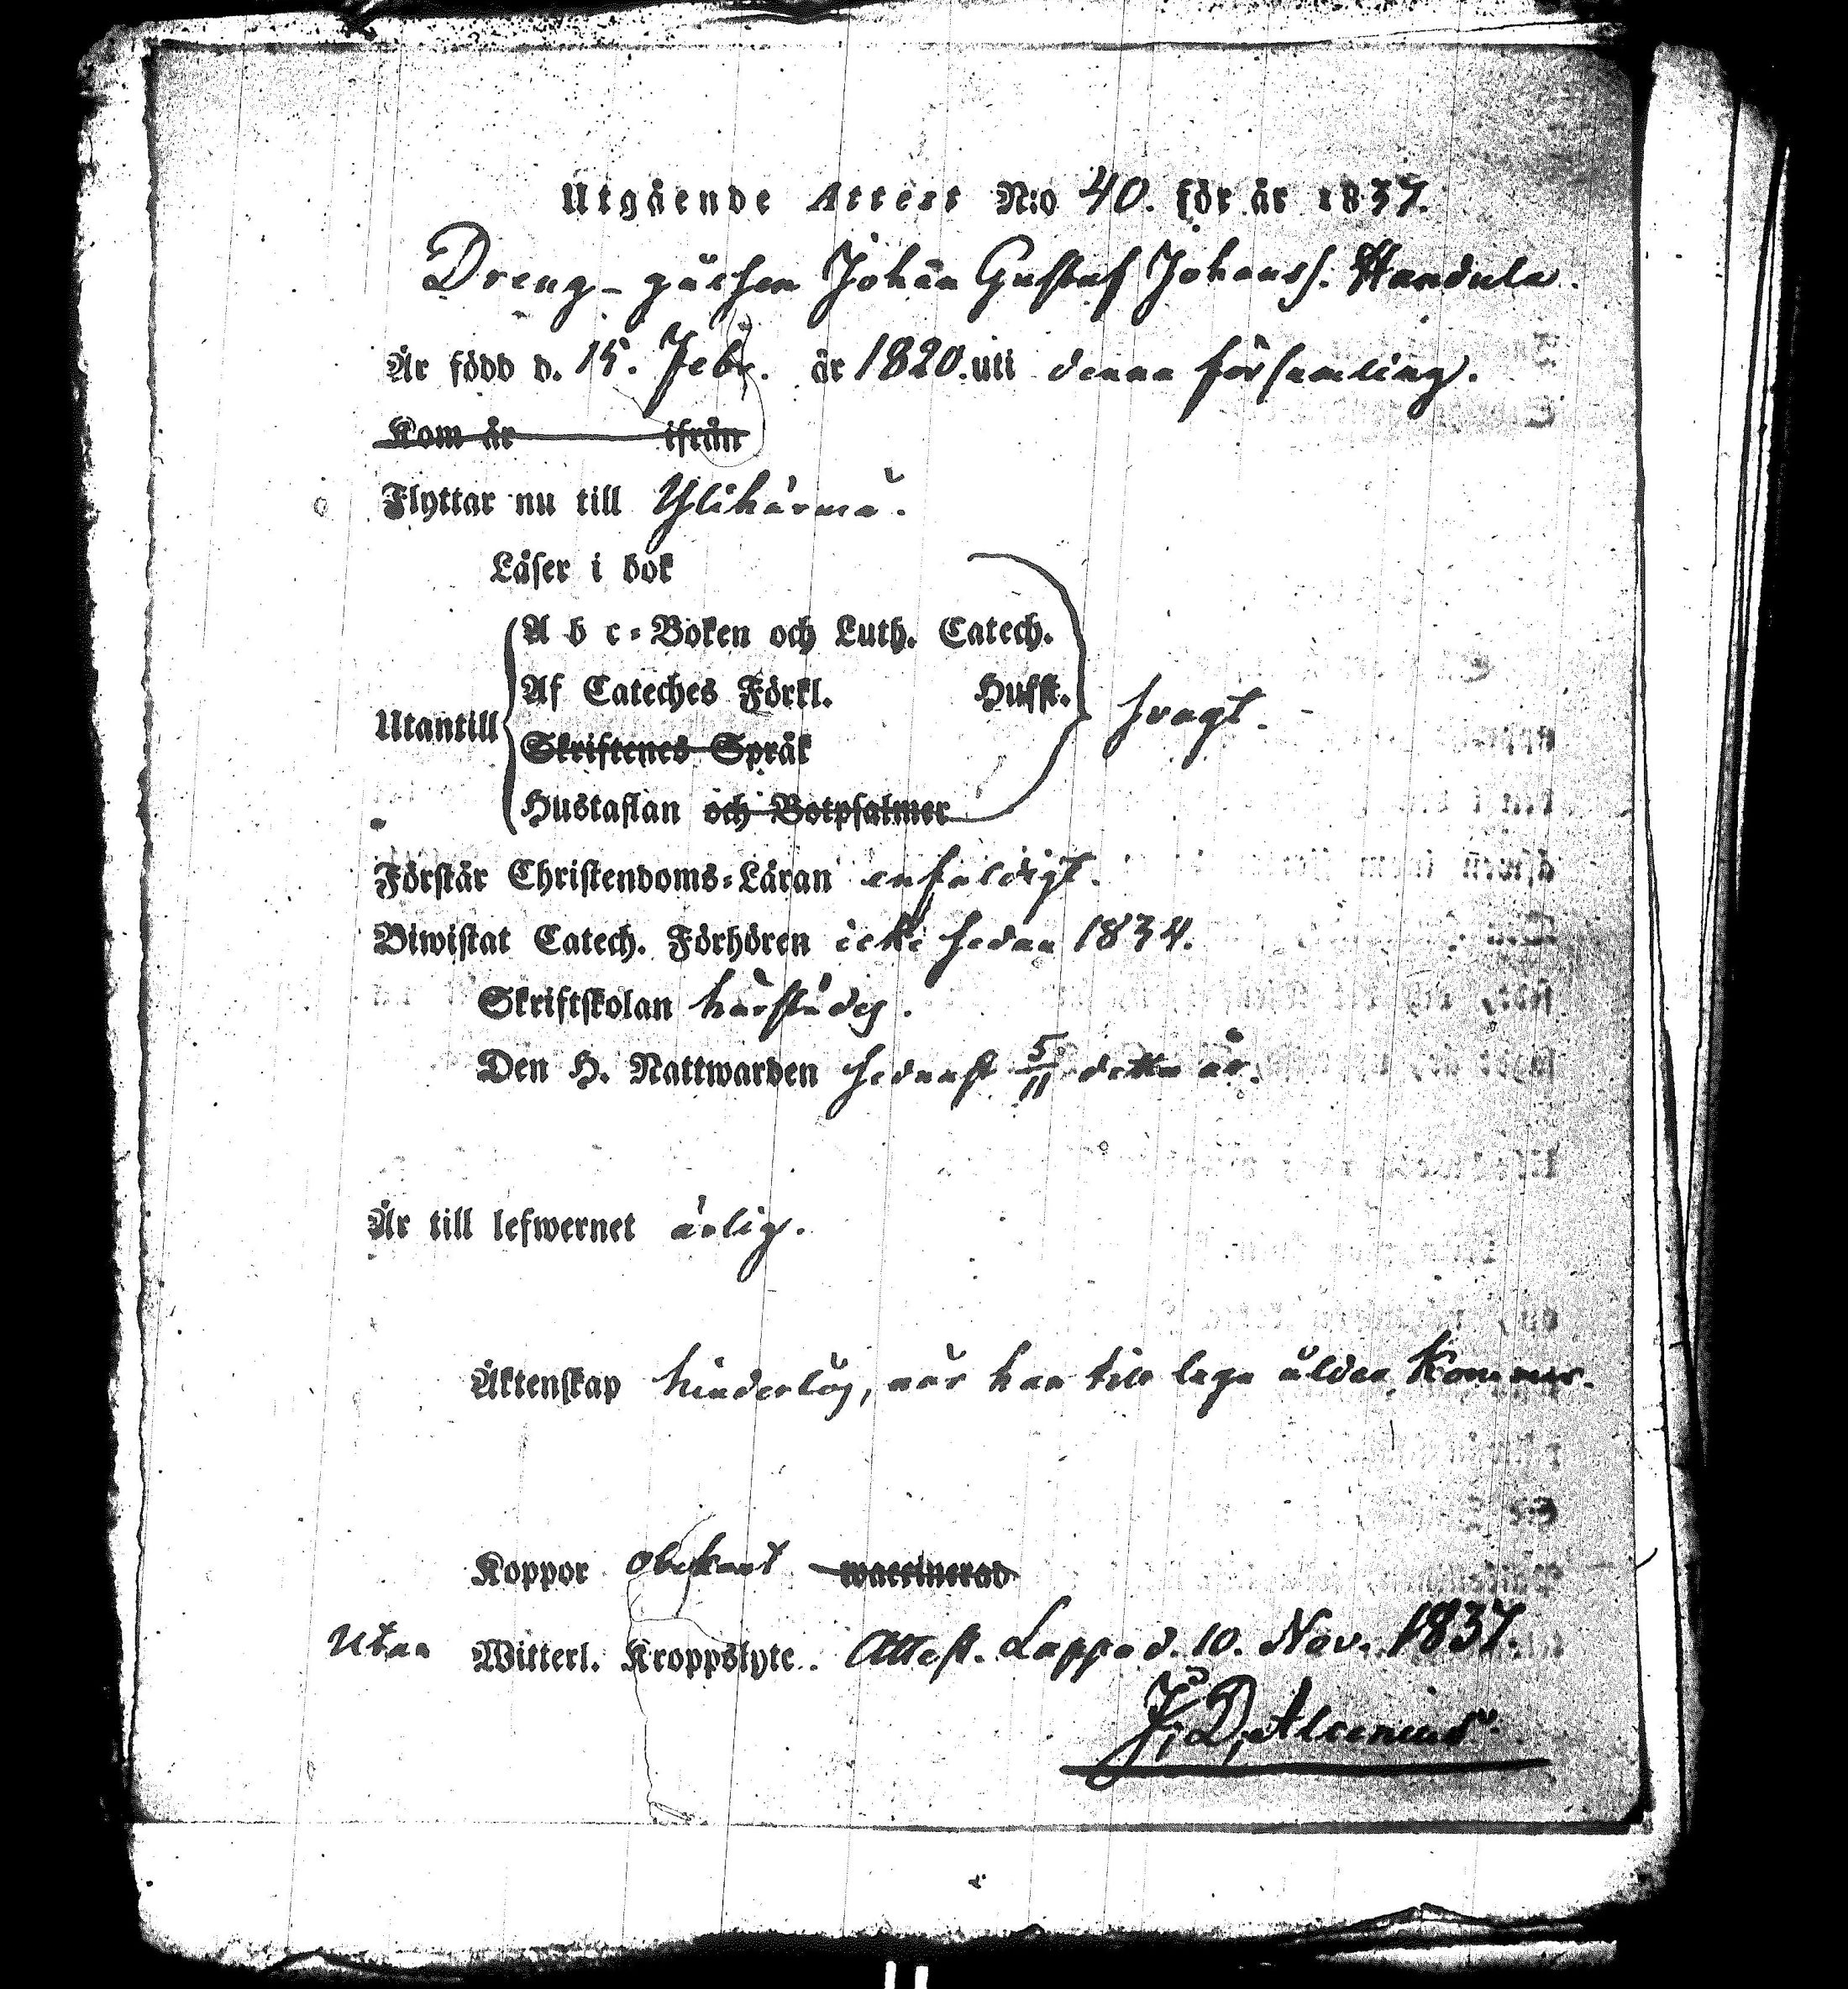 Utgående Attest N:o 40. för år 1837.
Dreng-gåshen Johan Gustaf Johanss. Handula.
Är född d. 15. Febr. år 1820. uti denna församling.
Kom år ifrån
Flyttar nu till Ylihärmä.
Läser i bok
A b c-Boken och Luth. Catech.
Af Cateches Förkl. Husst.
Utantill svagt.
Skriftenes Språk
Hustaflan och Botpsalmer
Förstår Christendoms-Läran enfaldigt.
Biwistat Catech. Förhören icke sedan 1834.
Skriftskolan härstädes.
Den H. Nattwarden sednast 5/11 detta år.
Är till lefwernet ärlig.
Äktenskap hinderlös, när han till laga ålder kommer.
Koppor obekant waccinerad
Utan Witterl. Kroppslyte. Attest. Lappo d. 10. Nov. 1837.
J. D. Alcenius